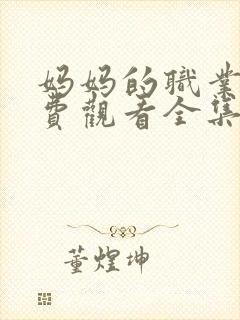 妈妈的職業
費觀看全集
董煌坤